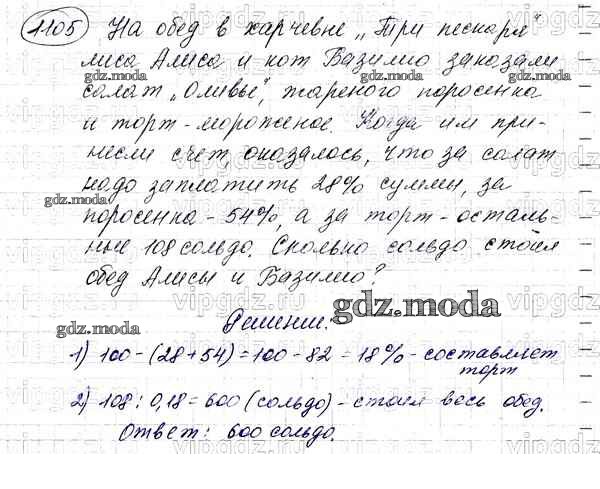 1105 На обед в харчевне „Три пескаря"
лиса Алиса и кот Базилио заказали
салат „Оливье", жареного поросенка
и торт-мороженое. Когда им при-
несли счет, оказалось, что за салат
надо заплатить 28% суммы, за
поросенка - 54%, а за торт - осталь-
ные 108 сольдо. Сколько сольдо стоил
обед Алисы и Базилио?
Решение.
1) 100 - (28 + 54) = 100 - 82 = 18% - составляет
торт
2) 108 : 0,18 = 600 (сольдо) - стоил весь обед.
Ответ: 600 сольдо.
gdz.moda
vipgdz.ru